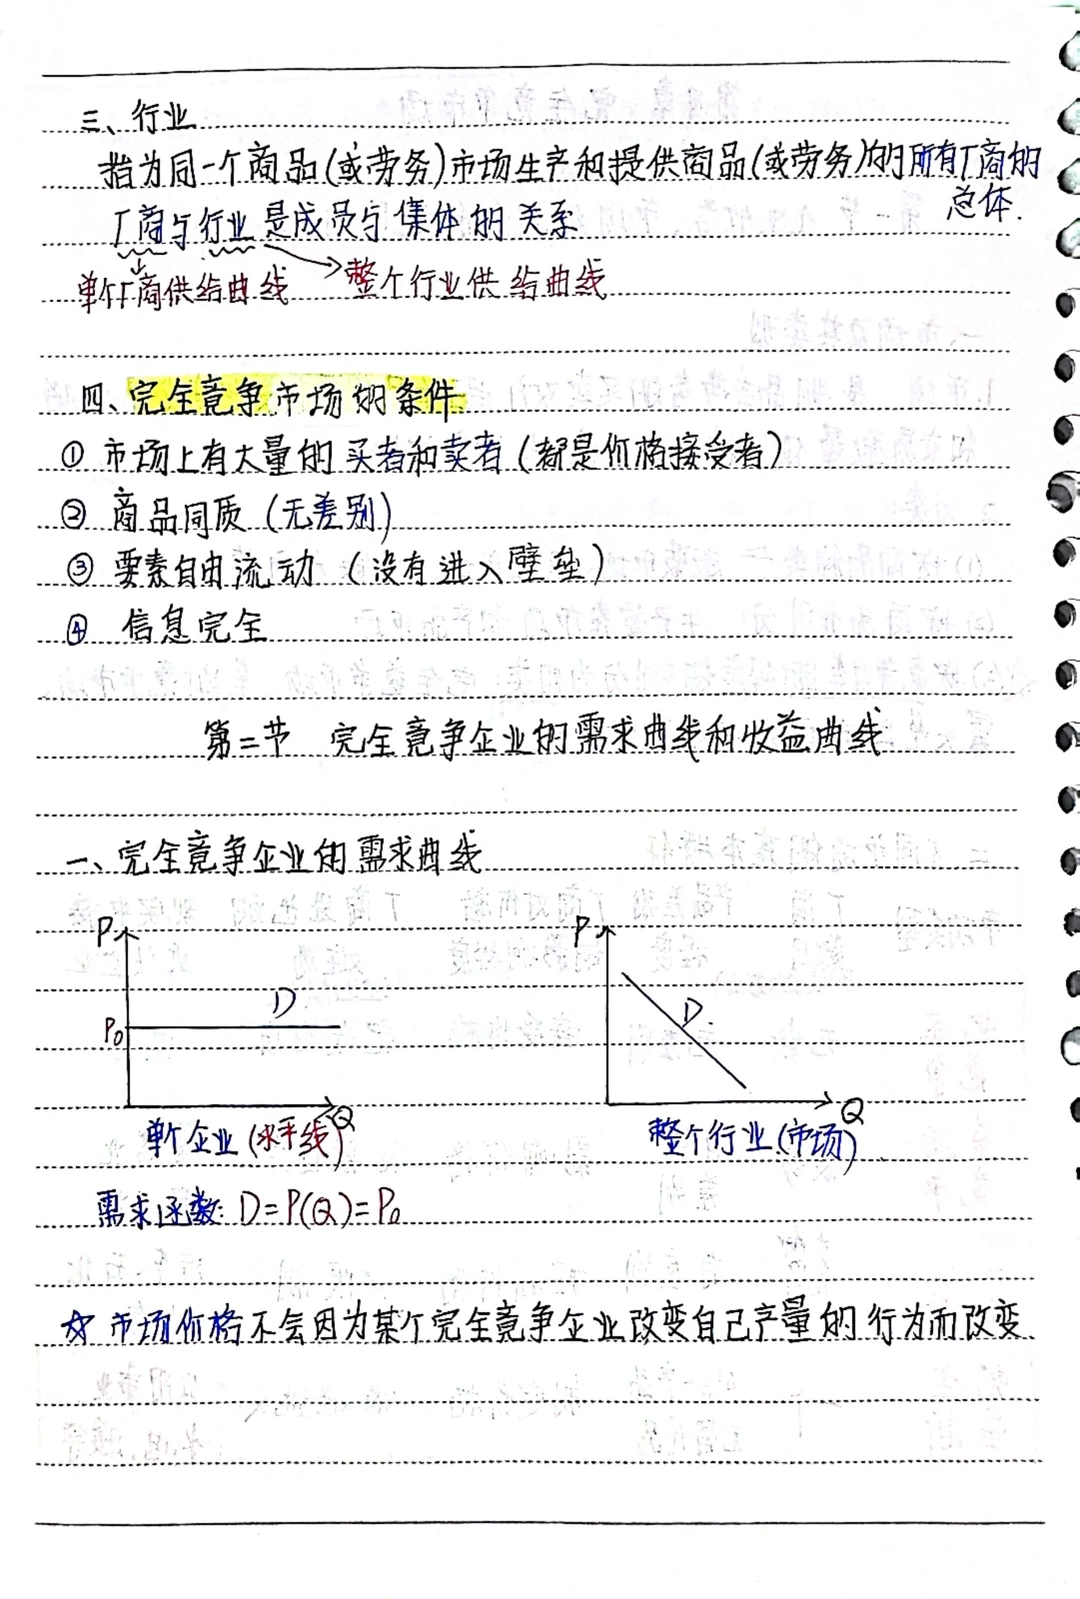 三、行业
指为同一个商品(或劳务)市场生产和提供商品(或劳务)的所有厂商的
总体.
厂商与行业是成员与集体的关系
单个厂商供给曲线 整个行业供给曲线
四、完全竞争市场的条件
① 市场上有大量的买者和卖者(都是价格接受者)
② 商品同质(无差别)
③ 要素自由流动(没有进入壁垒)
④ 信息完全
第二节 完全竞争企业的需求曲线和收益曲线
一、完全竞争企业的需求曲线
P P
D D
P₀
Q Q
单个企业(水平线) 整个行业(市场)
需求函数: D=P(Q)=P₀
☆ 市场价格不会因为某个完全竞争企业改变自己产量的行为而改变.